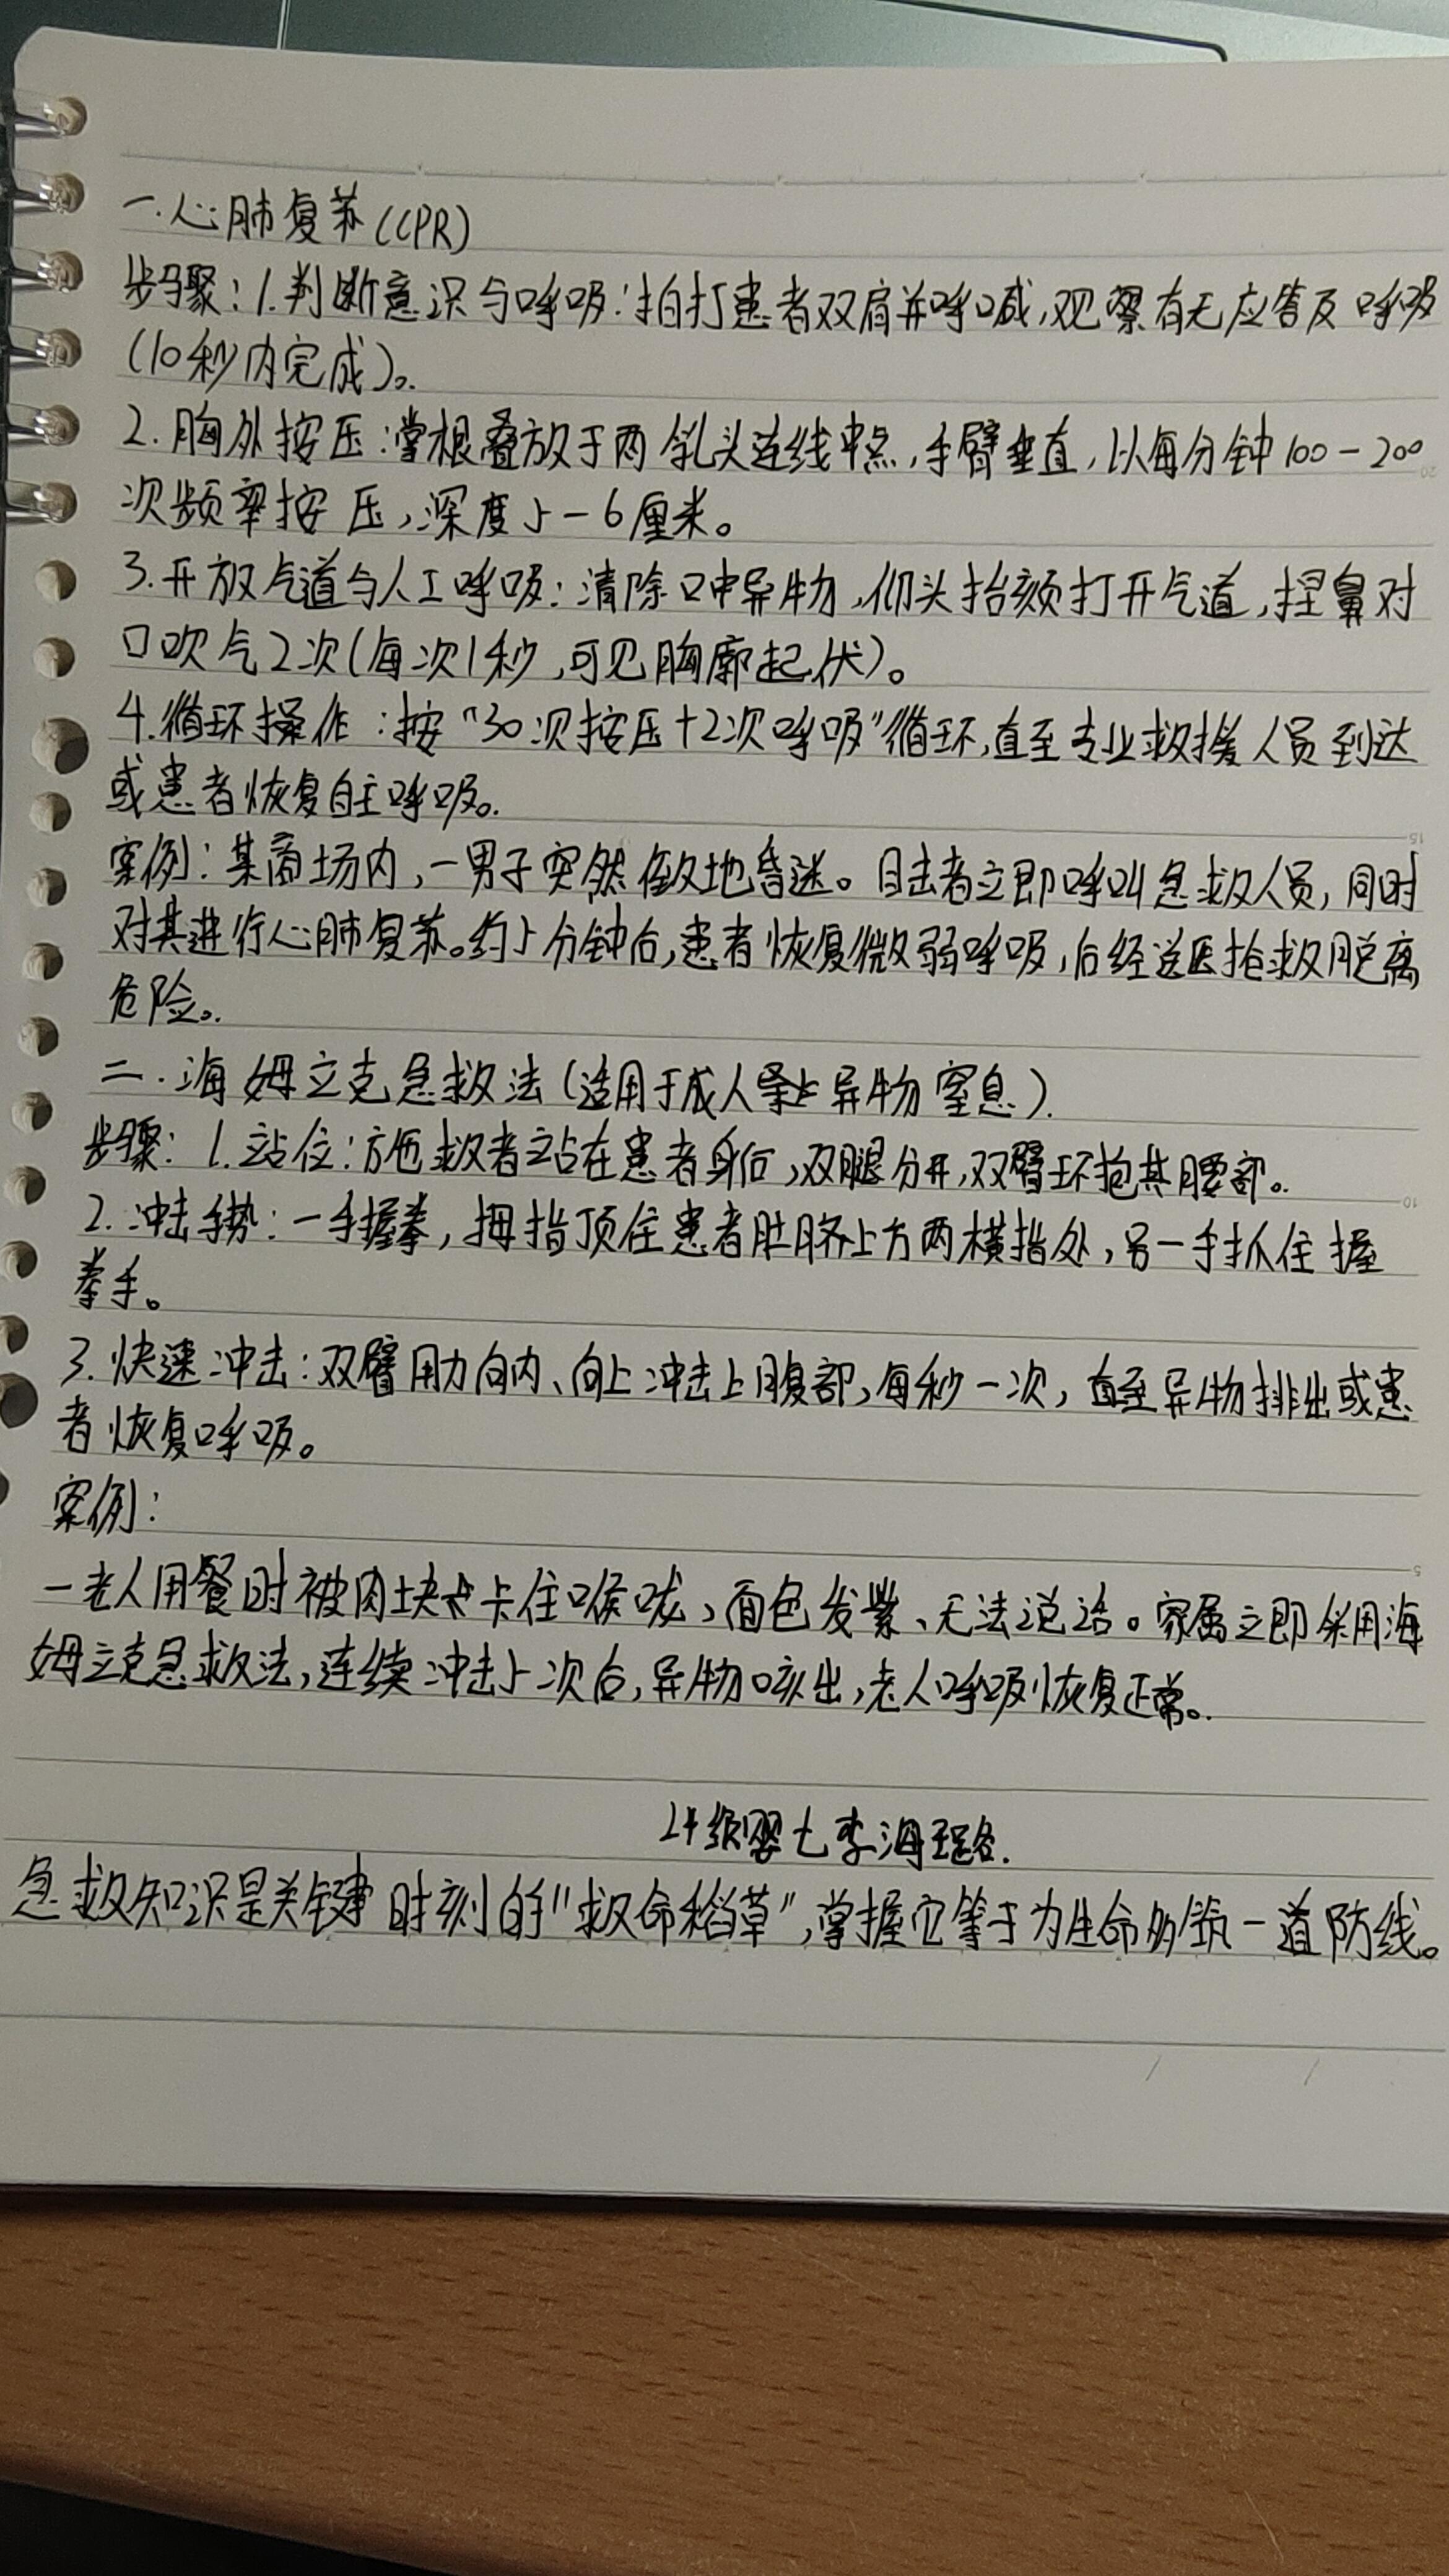 一.心肺复苏(CPR)
步骤:1.判断意识与呼吸:拍打患者双肩并呼喊,观察有无应答及呼吸
(10秒内完成)。
2.胸外按压:掌根叠放于两乳头连线中点,手臂垂直,以每分钟100-200
次频率按压,深度5-6厘米。
3.开放气道与人工呼吸:清除口中异物,仰头抬颏打开气道,捏鼻对
口吹气2次(每次1秒,可见胸廓起伏)。
4.循环操作:按"30次按压+2次呼吸"循环,直至专业救援人员到达
或患者恢复自主呼吸。
案例:某商场内,一男子突然倒地昏迷。目击者立即呼叫急救人员,同时
对其进行心肺复苏。约5分钟后,患者恢复微弱呼吸,后经送医抢救脱离
危险。
二.海姆立克急救法(适用于成人异物窒息).
步骤:1.站位:施救者站在患者身后,双腿分开,双臂环抱其腰部。
2.冲击手势:一手握拳,拇指顶住患者肚脐上方两横指处,另一手抓住握
拳手。
3.快速冲击:双臂用力向内、向上冲击上腹部,每秒一次,直至异物排出或患
者恢复呼吸。
案例:
一老人用餐时被肉块卡住喉咙、面色发紫、无法说话。家属立即采用海
姆立克急救法,连续冲击5次后,异物咳出,老人呼吸恢复正常。
七李海
急救知识是关键时刻的"救命稻草",掌握它等于为生命多筑一道防线。
5
10
15
20